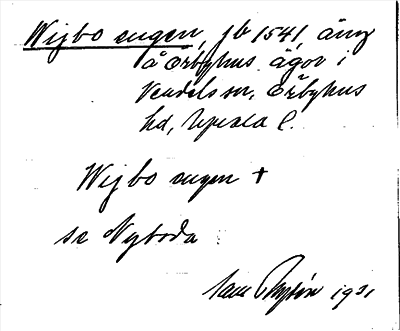 Wijbo engen, jb 1541, äng
å Örbyhus ägor i
Vendels sn, Örbyhus
hd, Upsala l.
Wijbo engen +
se Nyboda
1931